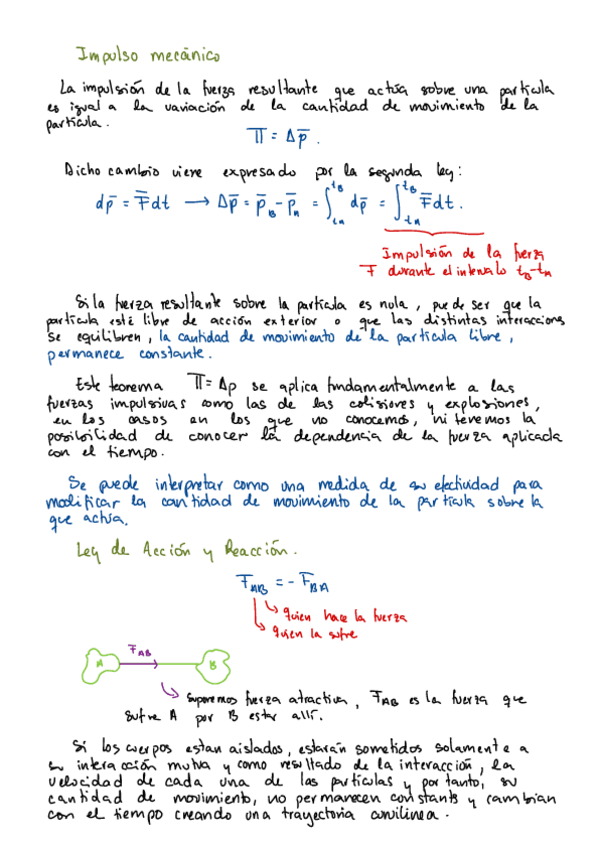 Impulso mecánico
La impulsión de la fuerza resultante que actúa sobre una partícula
es igual a la variación de la cantidad de movimiento de la
partícula.
Π = Δp̄.
Dicho cambio viene expresado por la segunda ley:
dp̄ = F̄dt → Δp̄ = p̄_B - p̄_A = ∫_{t_A}^{t_B} dp̄ = ∫_{t_A}^{t_B} F̄dt.
Impulsión de la fuerza
F durante el intervalo t_B-t_A
Si la fuerza resultante sobre la partícula es nula, puede ser que la
partícula esté libre de acción exterior o que las distintas interacciones
se equilibren, la cantidad de movimiento de la partícula libre,
permanece constante.
Este teorema Π = Δp se aplica fundamentalmente a las
fuerzas impulsivas como las de las colisiones y explosiones,
en los casos en los que no conocemos, ni tenemos la
posibilidad de conocer la dependencia de la fuerza aplicada
con el tiempo.
Se puede interpretar como una medida de su efectividad para
modificar la cantidad de movimiento de la partícula sobre la
que actúa.
Ley de Acción y Reacción.
F_AB = - F_BA
quien hace la fuerza
quien la sufre
F_AB
A B
Suponemos fuerza atractiva, F_AB es la fuerza que
sufre A por B estar allí.
Si los cuerpos estan aislados, estarán sometidos solamente a
su interacción mutua y como resultado de la interacción, la
velocidad de cada una de las partículas y por tanto, su
cantidad de movimiento, no permanecen constants y cambian
con el tiempo creando una trayectoria curvilínea.